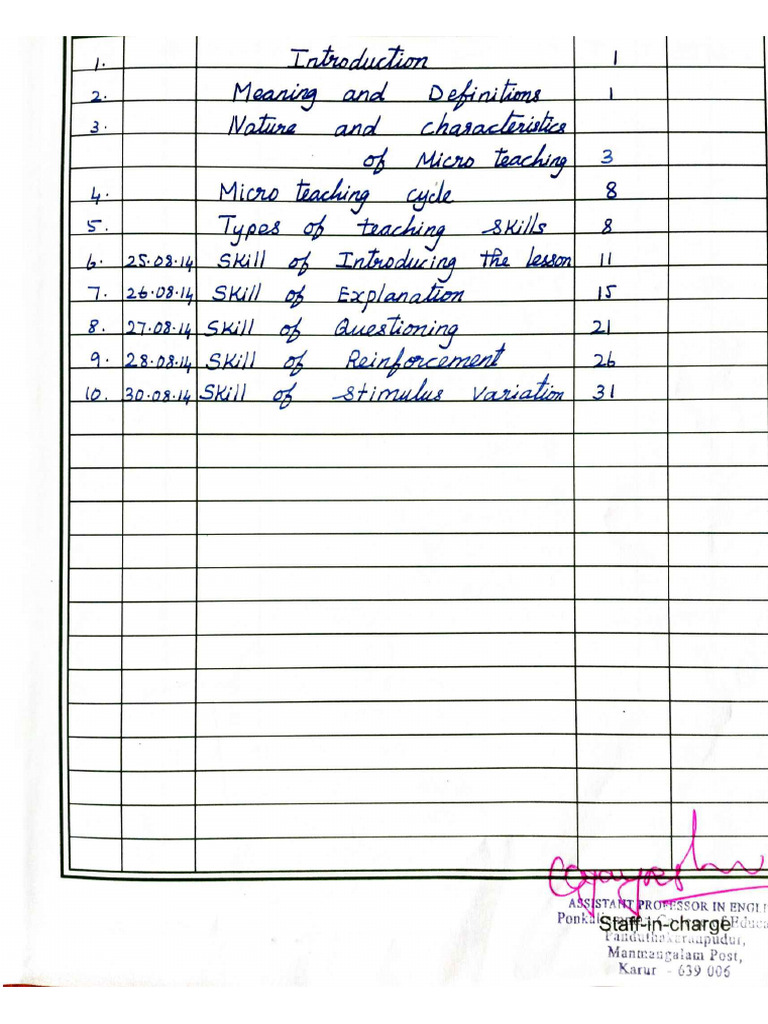 1. Introduction 1
2. Meaning and Definitions 1
3. Nature and characteristics
of Micro teaching 3
4. Micro teaching cycle 8
5. Types of teaching skills 8
6. 25.08.14 Skill of Introducing the lesson 11
7. 26.08.14 Skill of Explanation 15
8. 27.08.14 Skill of Questioning 21
9. 28.08.14 Skill of Reinforcement 26
10. 30.08.14 Skill of Stimulus Variation 31
ASSISTANT PROFESSOR IN ENGLI
of Educa
Staff-in-charge
Manmangalam Post,
Karur - 639 006